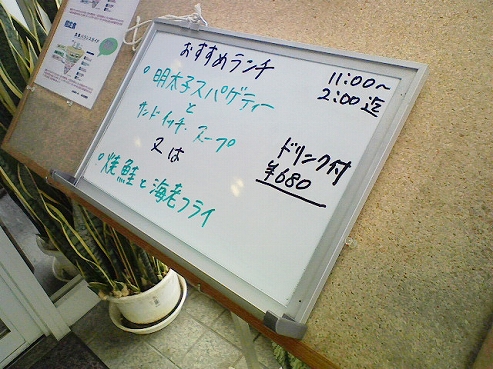 おすすめランチ
11:00〜
2:00迄
明太子スパゲティー
と
サンドイッチ・スープ
又は
焼鮭と海老フライ
ドリンク付
¥680